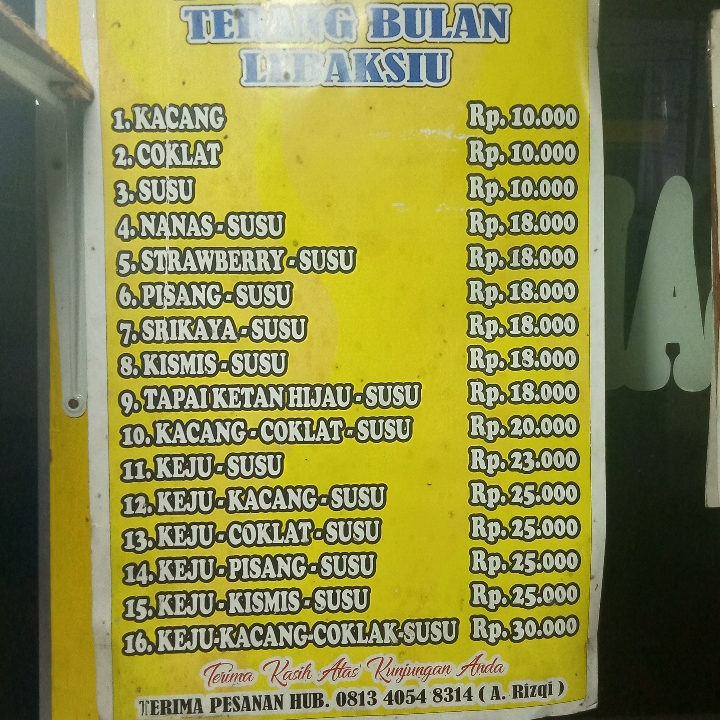 TERANG BULAN
LEBAKSIU
1. KACANG Rp. 10.000
2. COKLAT Rp. 10.000
3. SUSU Rp. 10.000
4. NANAS - SUSU Rp. 18.000
5. STRAWBERRY - SUSU Rp. 18.000
6. PISANG - SUSU Rp. 18.000
7. SRIKAYA - SUSU Rp. 18.000
8. KISMIS - SUSU Rp. 18.000
9. TAPAI KETAN HIJAU - SUSU Rp. 18.000
10. KACANG - COKLAT - SUSU Rp. 20.000
11. KEJU - SUSU Rp. 23.000
12. KEJU - KACANG - SUSU Rp. 25.000
13. KEJU - COKLAT - SUSU Rp. 25.000
14. KEJU - PISANG - SUSU Rp. 25.000
15. KEJU - KISMIS - SUSU Rp. 25.000
16. KEJU-KACANG-COKLAK-SUSU Rp. 30.000
Terima Kasih Atas Kunjungan Anda
TERIMA PESANAN HUB. 0813 4054 8314 ( A. Rizqi )